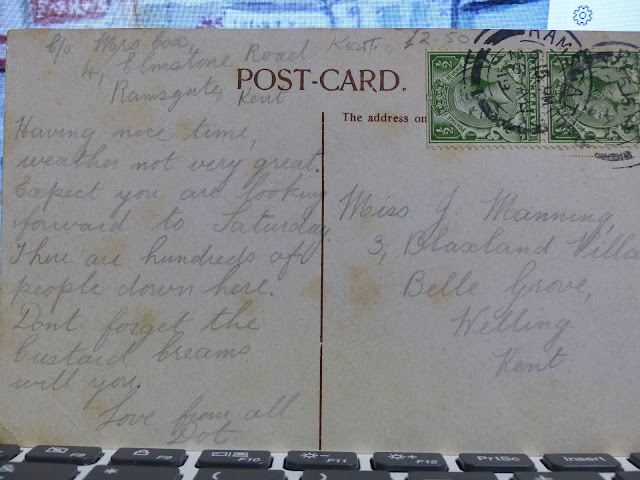 C/o Mrs Cox,
4, Elmstone Road
Ramsgate, Kent
KENT. £2.50
POST-CARD.
The address on
Having nice time,
weather not very great.
Expect you are looking
forward to Saturday.
There are hundreds of
people down here.
Dont forget the
Custard Creams
will you.
Love from all
Dot
½ ½
RAM
Miss J. Manning,
3, Blaxland Villa
Belle Grove,
Welling
Kent
F8 F9 F10 F11 F12 PrtSc Insert